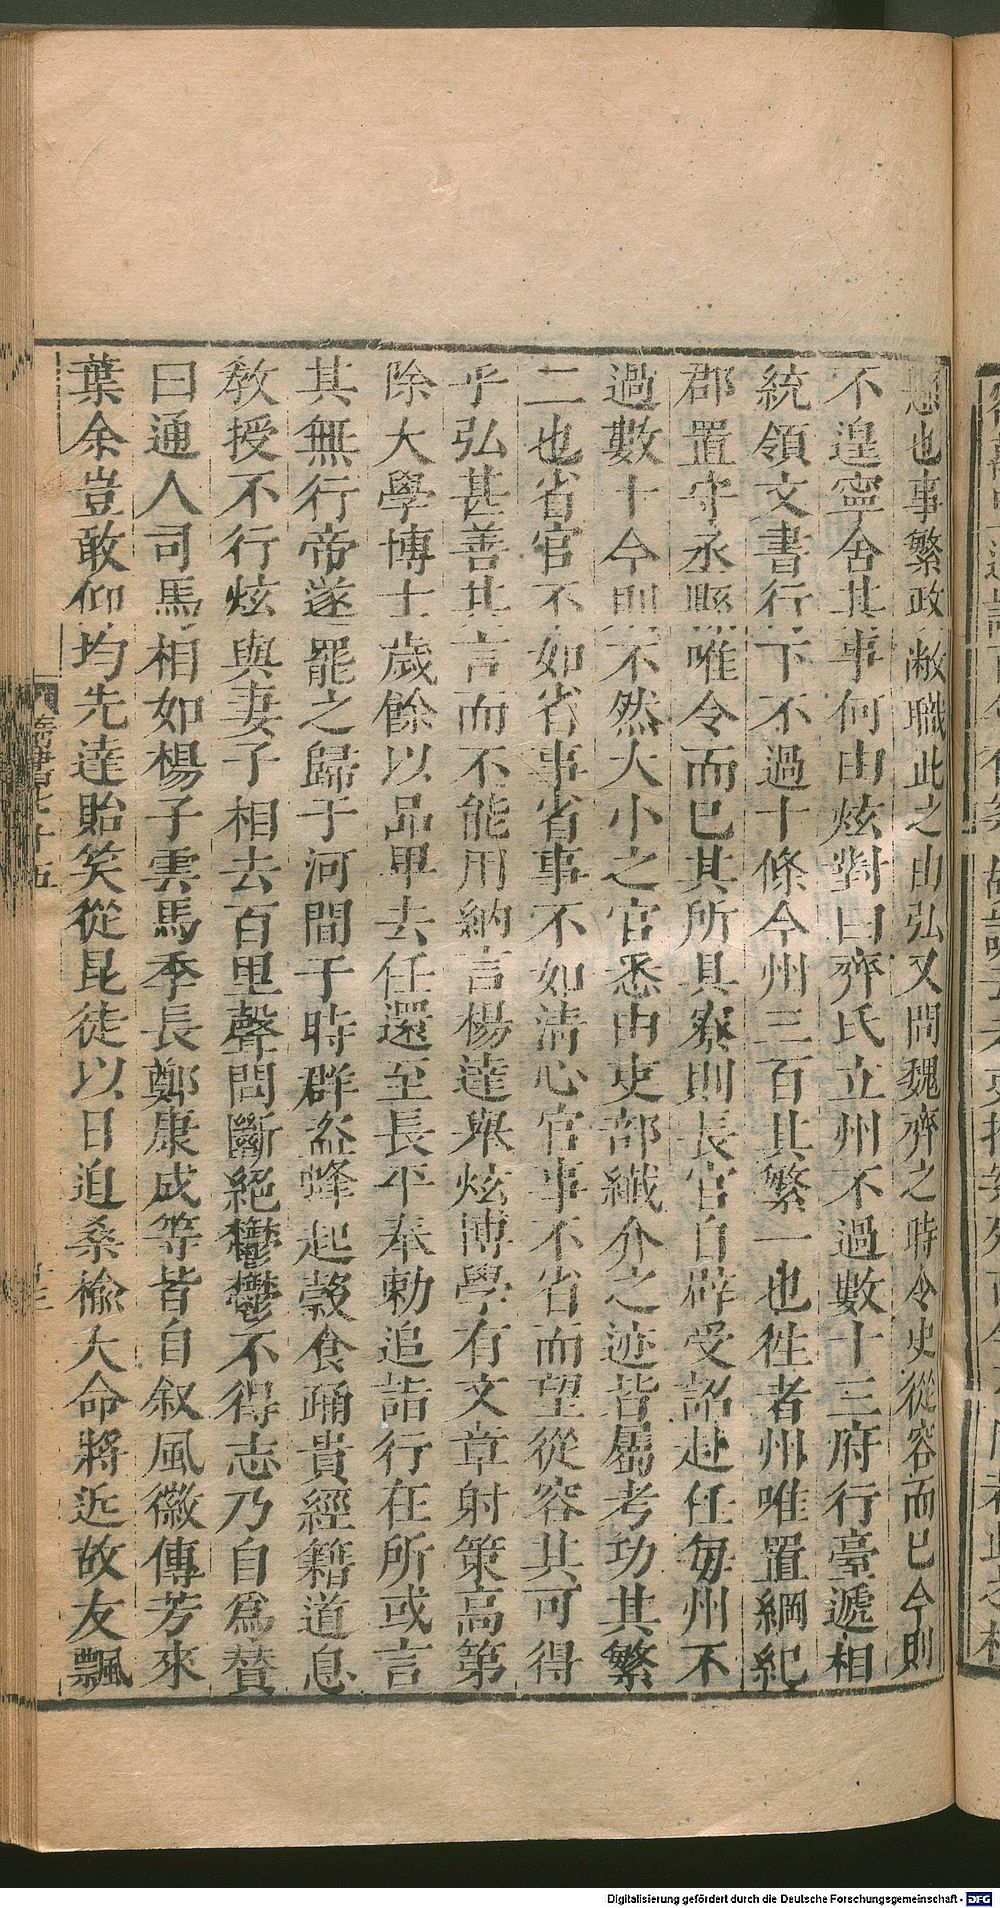 愆也事繁政敝職此之由弘又問魏齊之時令史從容而已今則
不遑寧舍其事何由炫對曰齊氏立州不過數十三府行臺遞相
統領文書行下不過十條今州三百其繁一也徃者州唯置綱紀
郡置守丞縣唯令而已其所具寮則長官自辟受詔赴任每州不
過數十今則不然大小之官悉由吏部纖介之迹皆屬考功其繁
二也省官不如省事省事不如清心官事不省而望從容其可得
乎弘甚善其言而不能用納言楊達舉炫博學有文章射策高第
除大學博士歲餘以品卑去任還至長平奉勅追詣行在所或言
其無行帝遂罷之歸于河間于時群盗蜂起穀食踊貴經籍道息
敎授不行炫與妻子相去百里聲問斷絕鬱鬱不得志乃自爲贊
曰通人司馬相如楊子雲馬季長鄭康成等皆自叙風徽傳芳來
葉余豈敢仰均先達貽笑從昆徒以日迫桑榆大命將近故友飄
隋書七十五
Digitalisierung gefördert durch die Deutsche Forschungsgemeinschaft - DFG